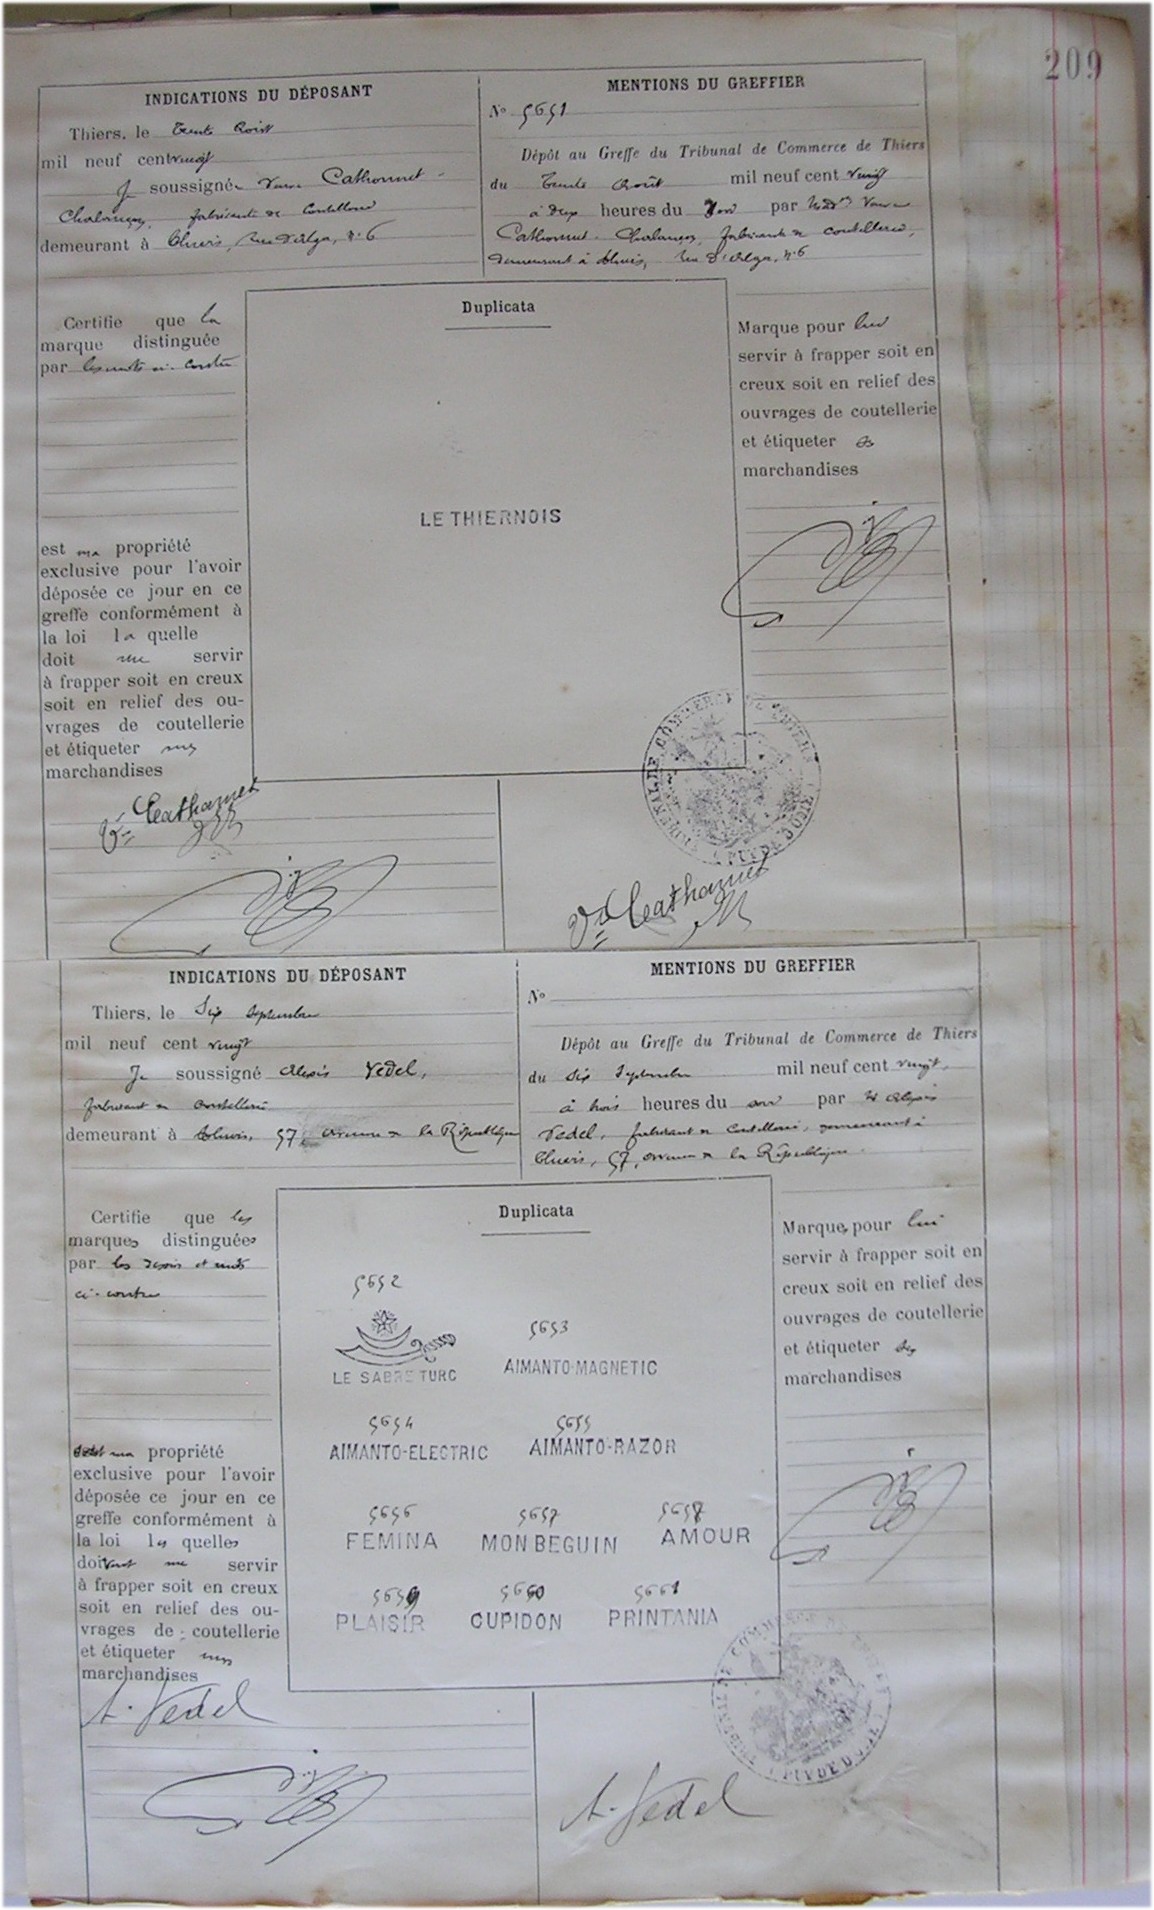 209
INDICATIONS DU DÉPOSANT
Thiers, le trente Août
mil neuf cent vingt
Je soussignée Veuve Cathonnet-
fabricante de Coutellerie
demeurant à Thiers, rue d'Alger, n. 6
MENTIONS DU GREFFIER
No 5651
Dépôt au Greffe du Tribunal de Commerce de Thiers
du trente Août mil neuf cent vingt
à deux heures du soir par Mme Veuve
fabricante de coutellerie,
demeurant à Thiers, rue d'Alger, n. 6
Certifie que la
marque distinguée
par les mots ci-contre
est ma propriété
exclusive pour l'avoir
déposée ce jour en ce
greffe conformément à
la loi la quelle
doit me servir
à frapper soit en creux
soit en relief des ou-
vrages de coutellerie
et étiqueter mes
marchandises
Duplicata
LE THIERNOIS
Marque pour lui
servir à frapper soit en
creux soit en relief des
ouvrages de coutellerie
et étiqueter ses
marchandises
TRIBUNAL DE COMMERCE DE THIERS
(PUY DE DOME)
INDICATIONS DU DÉPOSANT
Thiers, le Six Septembre
mil neuf cent vingt
Je soussigné Alexis Vedel,
fabricant de coutellerie
demeurant à Thiers, 57, avenue de la République
MENTIONS DU GREFFIER
No
Dépôt au Greffe du Tribunal de Commerce de Thiers
du Six Septembre mil neuf cent vingt,
à trois heures du soir par M Alexis
Vedel, fabricant de Coutellerie, demeurant à
Thiers, 57, avenue de la République
Certifie que les
marques distinguées
par les dessins et mots
ci-contre
ma propriété
exclusive pour l'avoir
déposée ce jour en ce
greffe conformément à
la loi les quelles
doivent me servir
à frapper soit en creux
soit en relief des ou-
vrages de coutellerie
et étiqueter mes
marchandises
Duplicata
5652
LE SABRE TURC
5653
AIMANTO-MAGNETIC
5654
AIMANTO-ELECTRIC
5655
AIMANTO-RAZOR
5656
FEMINA
5657
MON BEGUIN
5658
AMOUR
5659
PLAISIR
5660
CUPIDON
5661
PRINTANIA
Marques pour lui
servir à frapper soit en
creux soit en relief des
ouvrages de coutellerie
et étiqueter ses
marchandises
A. Vedel
A. Vedel